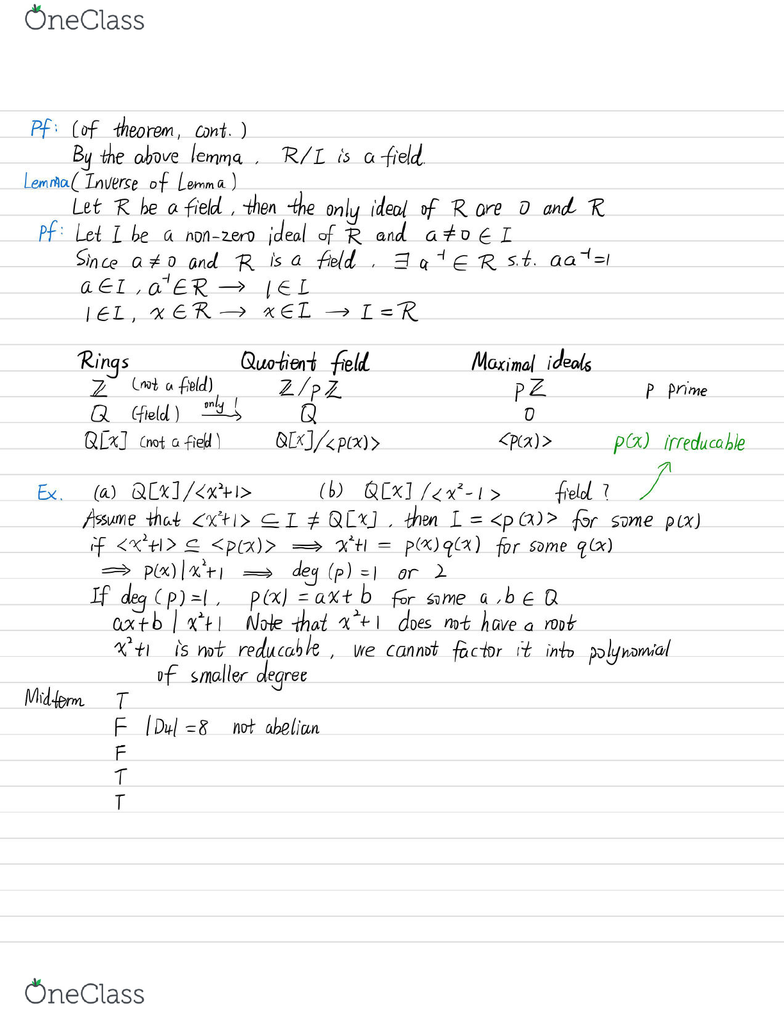 OneClass
Pf: (of theorem, cont.)
By the above lemma, R/I is a field.
Lemma (Inverse of Lemma)
Let R be a field, then the only ideal of R are 0 and R
Pf: Let I be a non-zero ideal of R and a≠0 ∈ I
Since a≠0 and R is a field, ∃ a⁻¹ ∈ R s.t. aa⁻¹=1
a∈I, a⁻¹∈R → 1∈I
1∈I, x∈R → x∈I → I=R
Rings Quotient field Maximal ideals
ℤ (not a field) ℤ/pℤ pℤ p prime
Q (field) only! → Q 0
Q[x] (not a field) Q[x]/<p(x)> <p(x)> p(x) irreducable
Ex. (a) Q[x]/<x²+1> (b) Q[x]/<x²-1> field?
Assume that <x²+1> ⊆ I ≠ Q[x], then I = <p(x)> for some p(x)
if <x²+1> ⊆ <p(x)> ⟹ x²+1 = p(x)q(x) for some q(x)
⟹ p(x)|x²+1 ⟹ deg(p)=1 or 2
If deg(p)=1, p(x)=ax+b for some a,b ∈ Q
ax+b | x²+1 Note that x²+1 does not have a root
x²+1 is not reducable, we cannot factor it into polynomial
of smaller degree
Midterm T
F |D4|=8 not abelian
F
T
T
OneClass